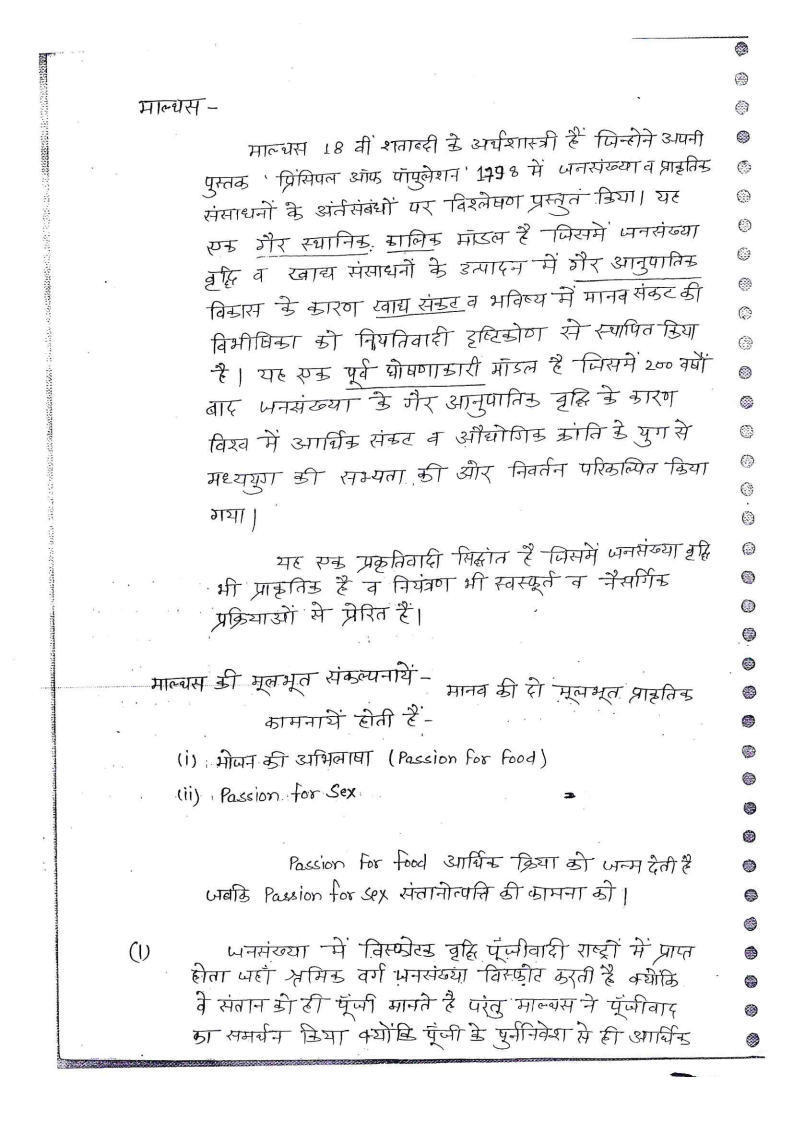 माल्थस -
माल्थस 18 वीं शताब्दी के अर्थशास्त्री हैं जिन्होंने अपनी
पुस्तक ' प्रिंसिपल ऑफ पॉपुलेशन' 1798 में जनसंख्या व प्राकृतिक
संसाधनों के अंर्तसंबंधों पर विश्लेषण प्रस्तुत किया। यह
एक गैर स्थानिक, कालिक मॉडल है जिसमें जनसंख्या
वृद्धि व खाद्य संसाधनों के उत्पादन में गैर आनुपातिक
विकास के कारण खाद्य संकट व भविष्य में मानव संकट की
विभीषिका को नियतिवादी दृष्टिकोण से स्थापित किया
है। यह एक पूर्व घोषणाकारी मॉडल है जिसमें 200 वर्षों
बाद जनसंख्या के गैर आनुपातिक वृद्धि के कारण
विश्व में आर्थिक संकट व औद्योगिक क्रांति के युग से
मध्ययुग की सभ्यता की ओर निवर्तन परिकल्पित किया
गया।
यह एक प्रकृतिवादी सिद्धांत है जिसमें जनसंख्या वृद्धि
भी प्राकृतिक है व नियंत्रण भी स्वस्फूर्त व नैसर्गिक
प्रक्रियाओं से प्रेरित है।
माल्थस की मूलभूत संकल्पनायें - मानव की दो मूलभूत प्राकृतिक
कामनायें होती हैं -
(i) भोजन की अभिलाषा (Passion for Food)
(ii) Passion for Sex
Passion For food आर्थिक क्रिया को जन्म देती है
जबकि Passion for sex संत्तानोत्पत्ति की कामना को।
(1) जनसंख्या में विस्फोटक वृद्धि पूँजीवादी राष्ट्रों में प्राप्त
होता जहाँ श्रमिक वर्ग जनसंख्या विस्फोट करती है क्योंकि
वे संतान को ही पूँजी मानते है परंतु माल्थस ने पूँजीवाद
का समर्थन किया क्योंकि पूँजी के पुर्ननिवेश से ही आर्थिक